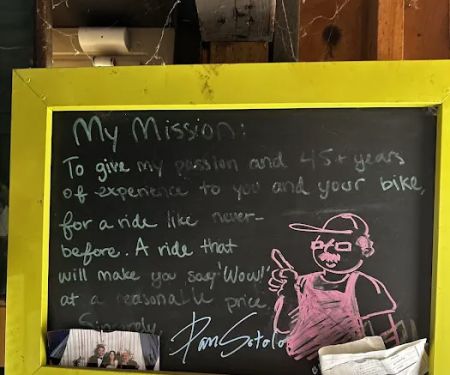 My Mission:
To give my passion and 45+ years
of experience to you and your bike,
for a ride like never-
before. A ride that
will make you say "Wow!"
at a reasonable price
Sincerely,